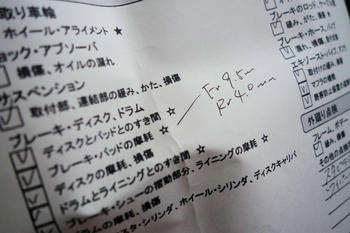 取り車輪
ホイール・アライメント ☆
ョック・アブソーバ
損傷、オイルの漏れ
サスペンション
取付部、連結部の緩み、がた、損傷
ブレーキ・ディスク、ドラム
ディスクとパッドとのすき間 ☆
ブレーキ・パッドの摩耗 ☆
ディスクの摩耗、損傷
ドラムとライニングとのすき間 ☆
ブレーキ・シューの摺動部分、ライニングの摩耗 ☆
ドラムの摩耗、損傷
スタ・シリンダ、ホイール・シリンダ、ディスクキャリパ
Fr 9.5m
Rr 4.0mm
ブレーキのロッド、ケーブ
緩み、がた、損傷
ブレーキ・ホース、パイプ
漏れ、損傷、取付状
エキゾースト・パイプ、マフ
取付の緩み、損傷
マフラの機能
外廻り点検
フレーム、ボデー
緩み、損傷
その他の点検